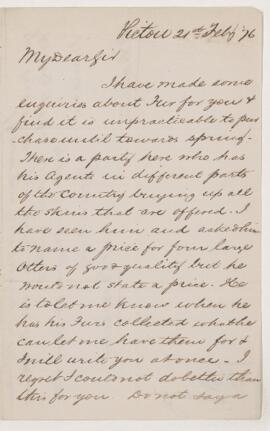 Pictou 21st Feby '76
My Dear Sir
I have made some
enquiries about Fur for you &
find it is unpracticable to pur
-chase until towards spring -
There is a party here who has
his Agents in different parts
of the Country buying up all
the skins that are offered - I
have seen him and asked him
to name a price for four large
Otters of good quality but he
would not state a price. He
is to let me know when he
has his Furs collected what he
can let me have them for &
I will write you at once - I
regret I could not do better than
this for you. Do not say a